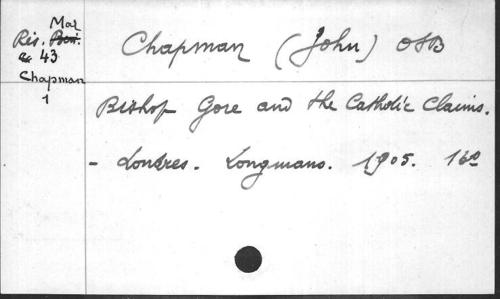 Mar
Rés. Bén.
43
Chapman
1
Chapman (John) OSB
Bishop Gore and the Catholic Claims.
- Londres. Longmans. 1905. 16°